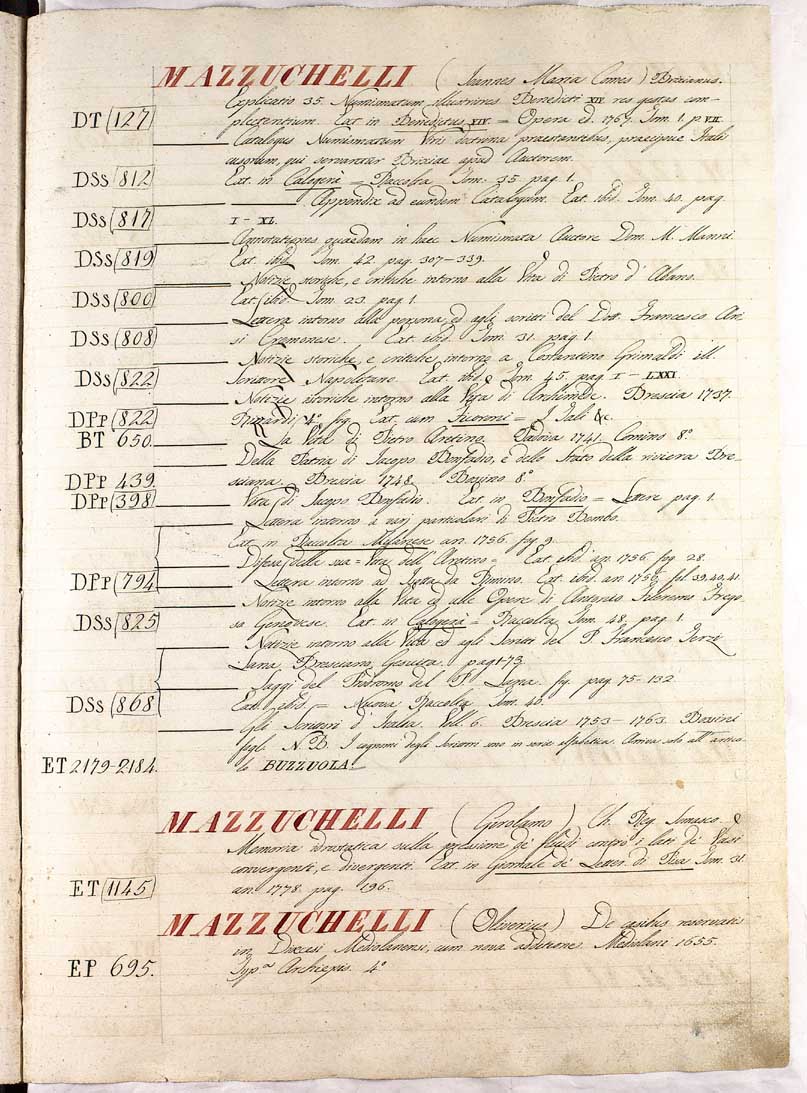 MAZZUCHELLI (Joannes Maria Comes) Brixianus.
Explicatio 35. Numismatum illustriores Benedicti XIV res gestas com-
DT (127 plectentium. Ext. in Benedictus XIV = Opera ed. 1767. Tom. 1. p. VII.
Catalogus Numismatum Viris doctrina praestantibus, praecipue Itali
cusorum, qui servantur Brixiae apud Auctorem.
DSs (812 Ext. in Calogerà = Raccolta Tom. 35. pag. 1.
Appendix ad eundem Catalogum. Ext. ibid. Tom. 40. pag.
DSs (817 I - XL.
Annotationes quaedam in haec Numismata Auctore Dom. M. Manni.
DSs (819 Ext. ibid. Tom. 42. pag. 307-339.
Notizie storiche, e critiche intorno alla Vita di Pietro d' Abano.
DSs (800 Ext. ibid. Tom. 23. pag. 1.
Lettera intorno alla persona, ed agli scritti del Dott. Francesco Ari
DSs (808 si Cremonese. Ext. ibid. Tom. 31. pag. 1.
Notizie storiche, e critiche intorno a Costantino Grimaldi ill.
DSs (822 Scrittore Napoletano. Ext. ibid. Tom. 45. pag. I - LXXI.
Notizie istoriche intorno alla Vita di Archimede. Brescia 1737.
DPp (822 Rizzardi, 4° fig. Ext. cum = J Tali &c.
BT 650. La Vita di Pietro Aretino. Padova 1741. Comino 8°
Della Patria di Jacopo Bonfadio, e dello Stato della riviera Bre-
DPp 439 sciana. Brescia 1748. Bossino 8°
DPp (398 Vita di Jacopo Bonfadio. Ext. in Bonfadio = Lettere pag. 1.
Lettera intorno a varj particolari di Pietro Bembo.
Ext. in Raccolta Milanese an. 1756. fog. 9.
Difesa della sua = Vita dell' Aretino = Ext. ibid. an. 1756. fog. 28.
DPp (794 Lettera intorno ad Isotta da Rimino. Ext. ibid. an. 1756. fol. 39, 40, 41.
Notizie intorno alla Vita ed alle Opere di Antonio Fileremo Frego
DSs (825 so Genovese. Ext. in Calogerà = Raccolta Tom. 48. pag. 1.
Notizie intorno alla Vita ed agli Scritti del P. Francesco Terzi
Lana, Bresciano, Gesuita. pag. 1-73.
Saggi del Prodromo del P. Lana. fig. pag. 75-132.
DSs (868 Ext. ibid. = Nuova Raccolta Tom. 40.
Gli Scrittori d' Italia. Voll. 6. Brescia 1753-1763. Bossini
fogl. NB. I cognomi degli Scrittori sono in serie alfabetica. Arriva solo all' artico-
ET 2179-2184. lo BUZZUOLA.
MAZZUCHELLI (Girolamo) Ch. Reg. Somasco.
Memoria idrostatica sulla pressione de' fluidi contro i lati de' Vasi
convergenti, e divergenti. Ext. in Giornale de' Letter. di Pisa Tom. 31.
ET (1145 an. 1778. pag. 196.
MAZZUCHELLI (Oliverius) De casibus reservatis
in Dioecesi Mediolanensi, cum nova additione. Mediolani 1655.
EP 695. Typ.is Archiepis. 4°